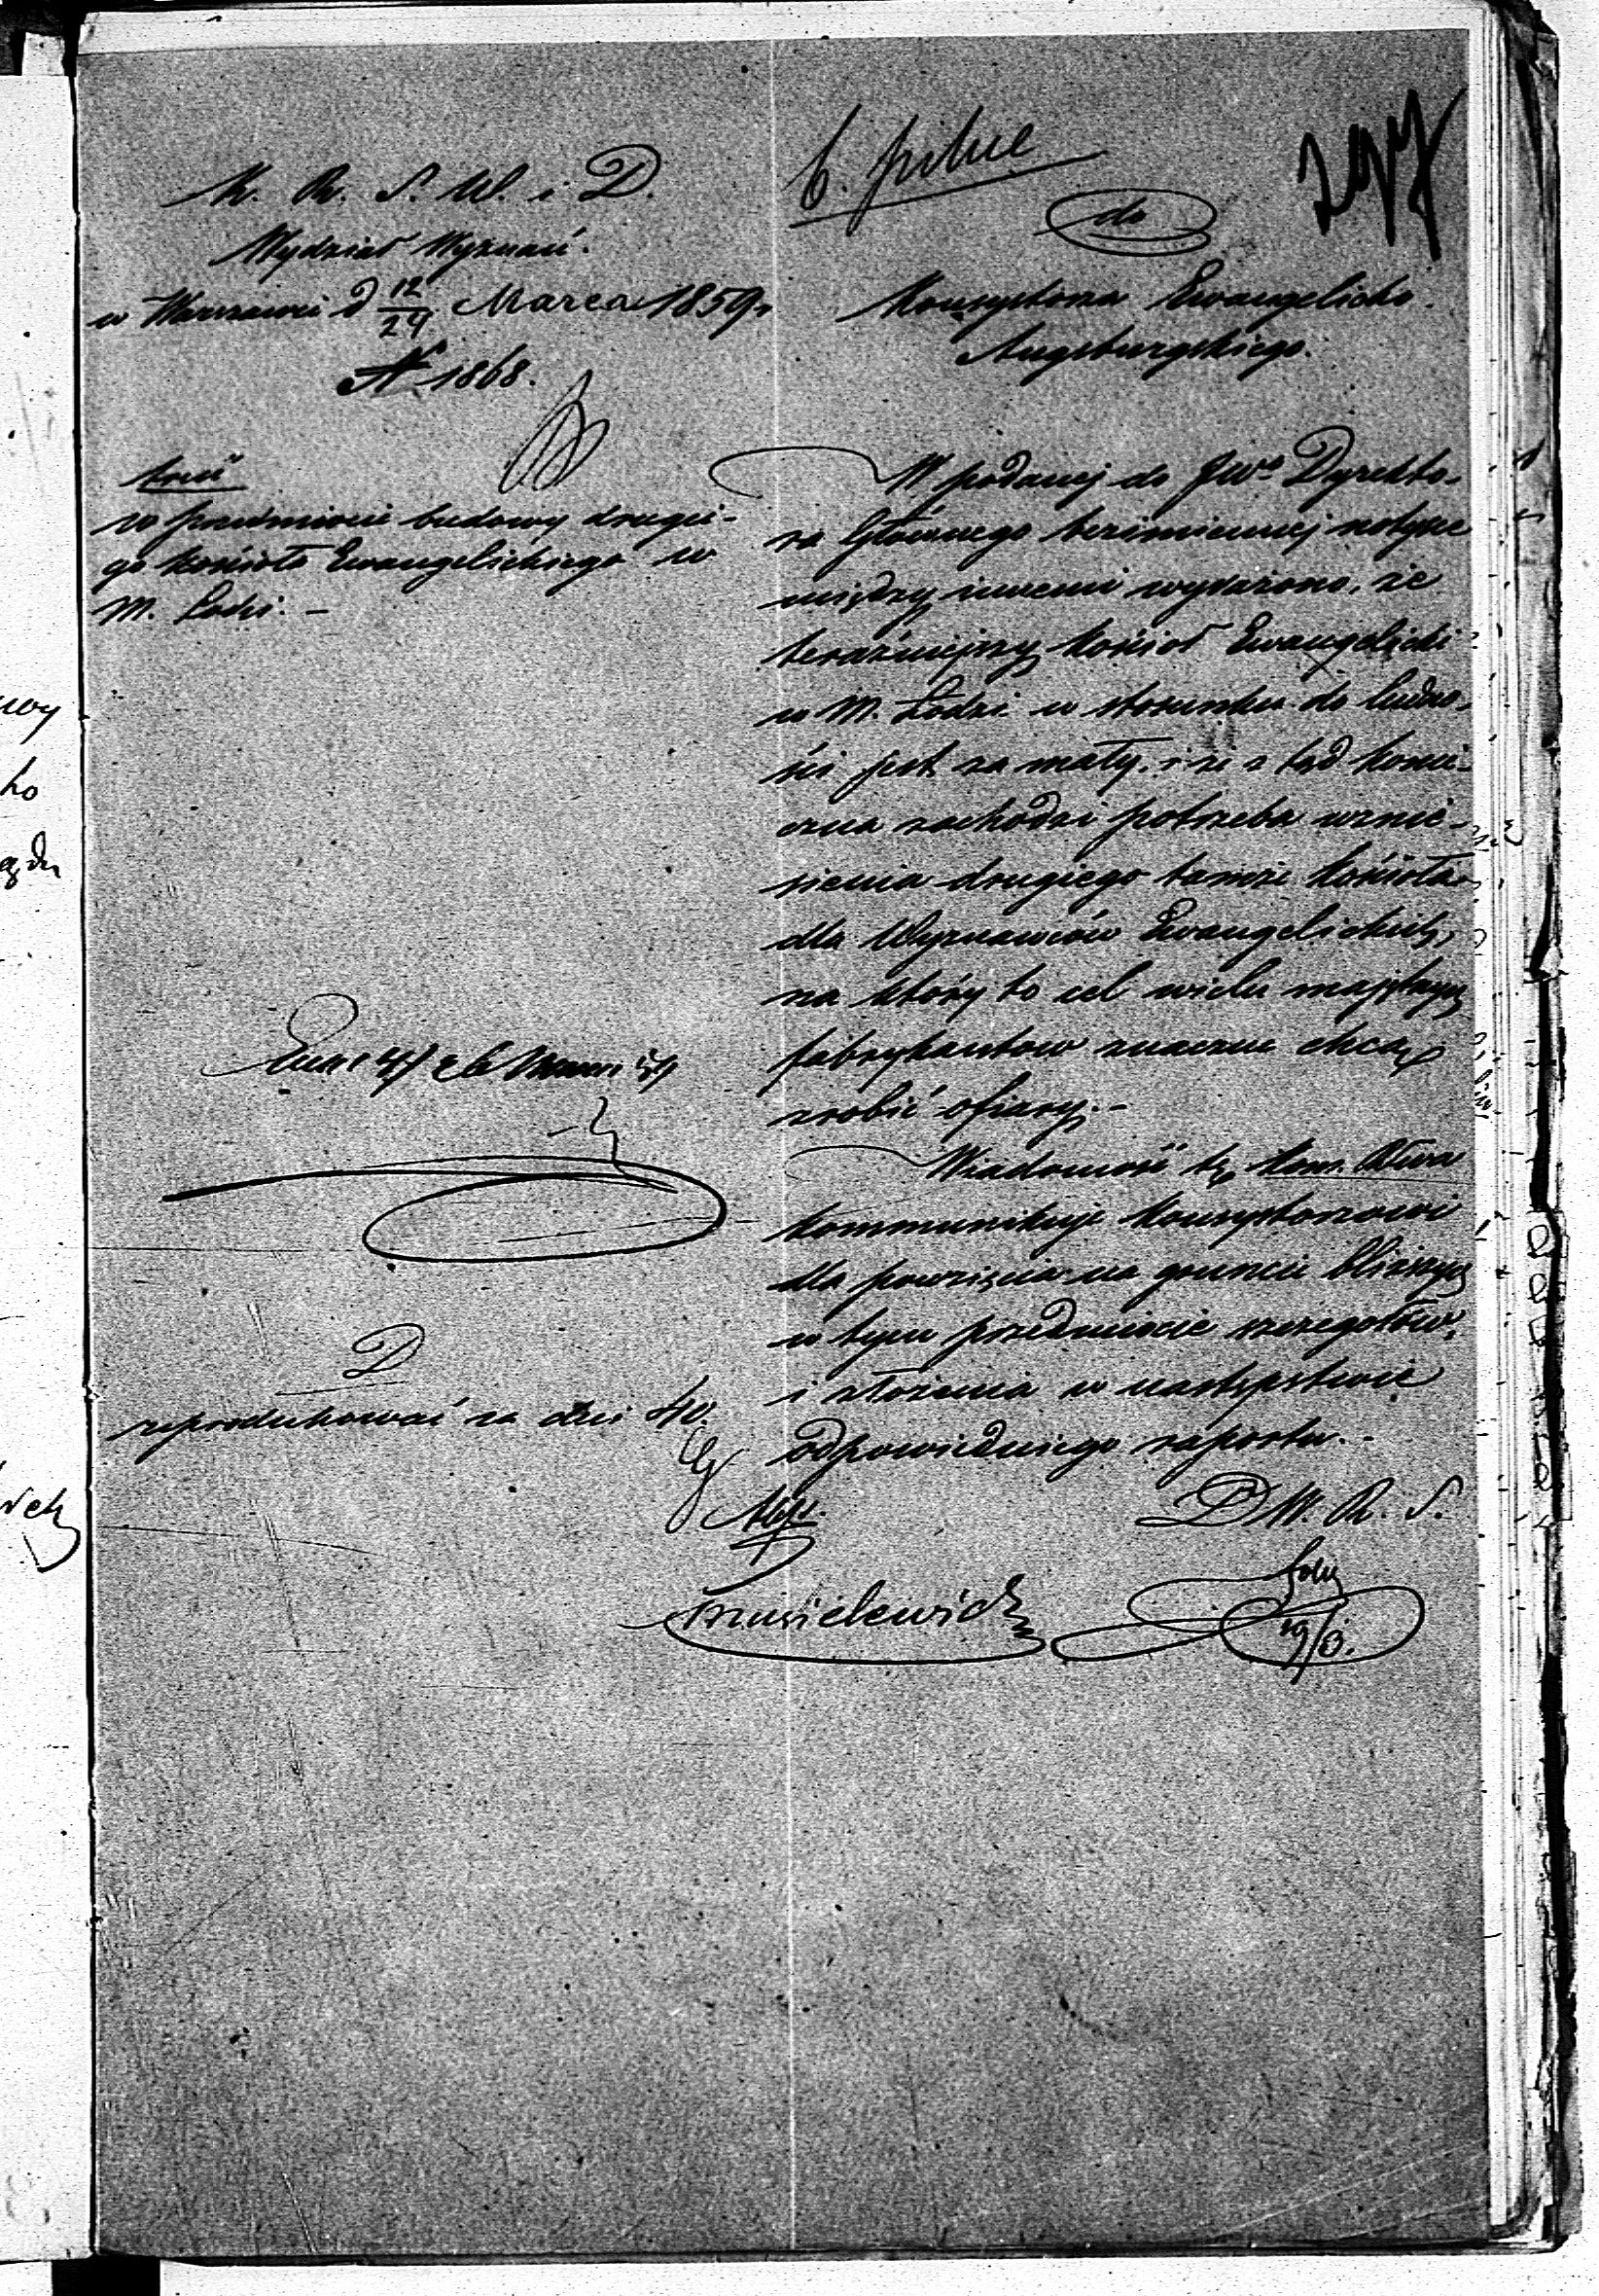 K. R. S. W. i D.
Wydział Wyznań.
w Warszawie d 12/24 Marca 1859 r.
N 1868.
treść
w przedmiocie budowy drugie-
go kościoła Ewangelickiego w
M. Łodzi. -
D
reprodukować za dni 40.
b. pilne
207
do
Konsystorza Ewangelicko.
Augsburgskiego.
W podanej do JWo Dyrekto-
ra Głównego bezimiennej notyce
między innemi wyrażono, że
teraźniejszy kościoł Ewangelicki
w M. Łodzi w stosunku do ludno-
ści jest za mały, i że z tąd koniе-
czna zachodzi potrzeba wznie-
sienia drugiego tamże kościoła
dla Wyznawców Ewangelickich,
na który to cel wielu majętnych
fabrykantów znaczne chcą
zrobić ofiary. -
Wiadomość tę Kom. Rdwa
kommunikuje Konsystorzowi
dla powzięcia na gruncie bliższych
w tym przedmiocie szczegółów,
i złożenia w następstwie
odpowiedniego raportu. -
D W. R. S.
19/3.